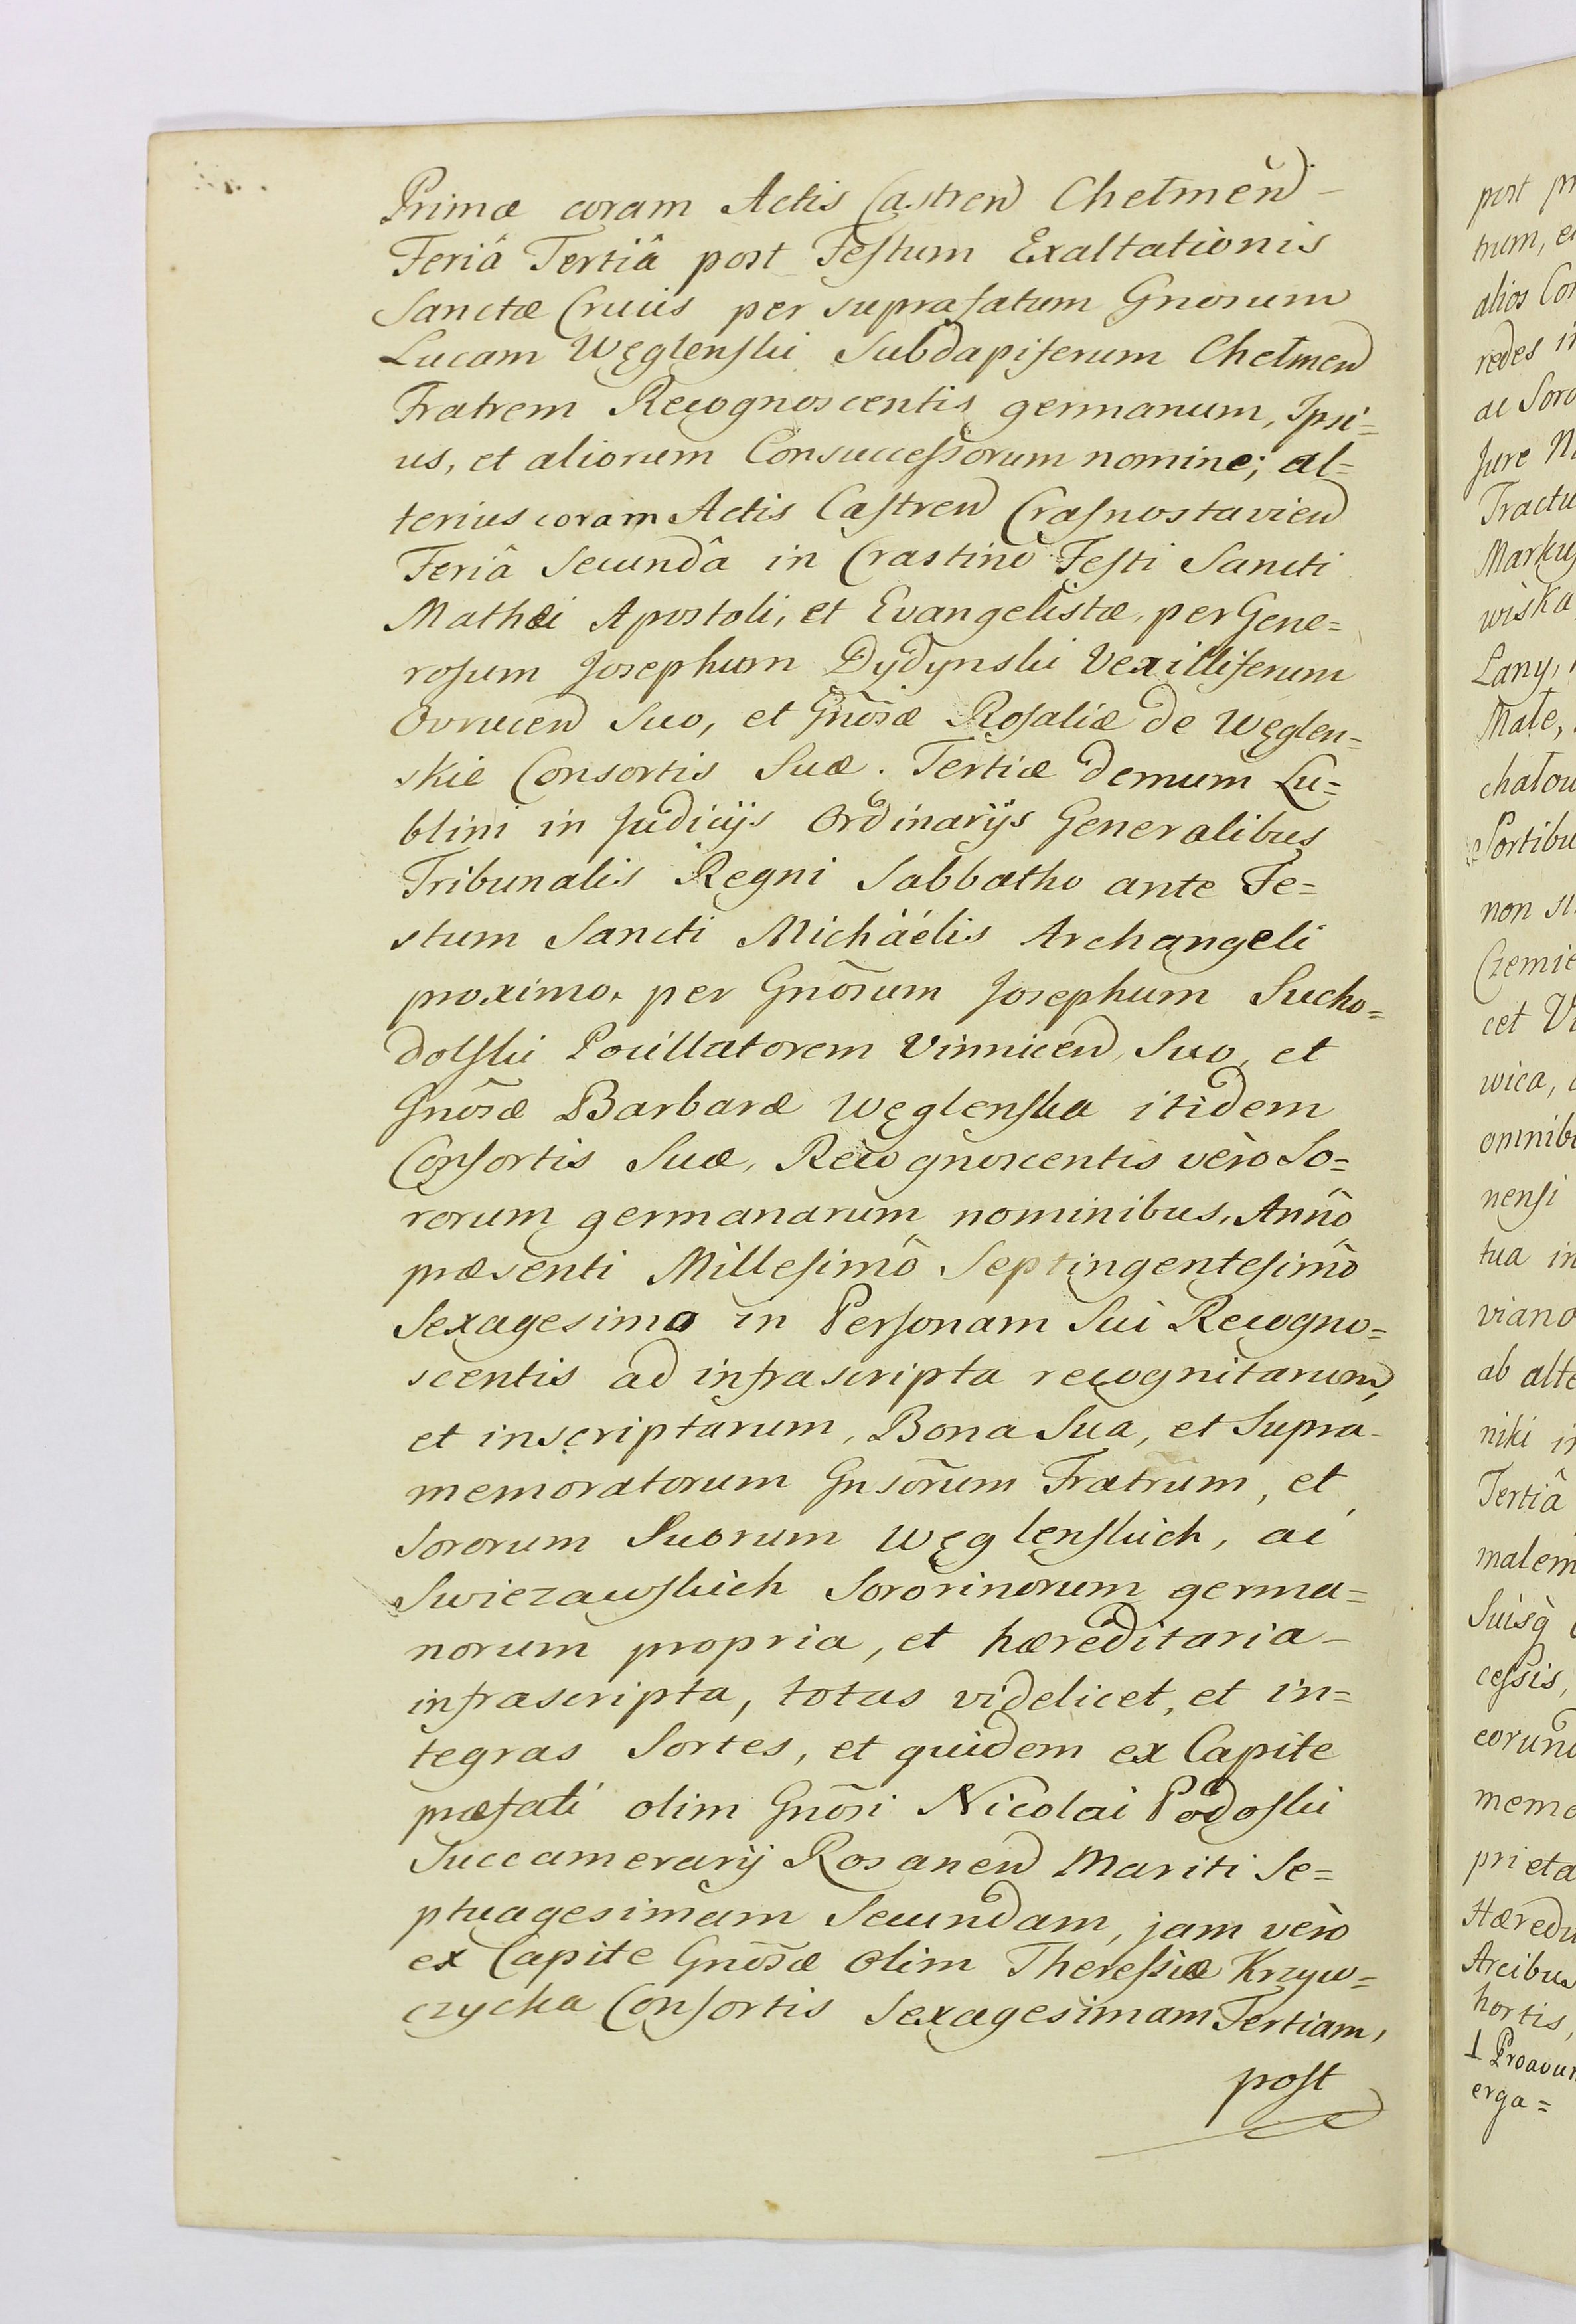 Primæ coram Actis Castren Chełmen
Feriâ Tertiâ post Festum Exaltationis
Sanctæ Crucis per suprafatum Gnosum
Lucam Węglenski Subdapiferum Chełmen
Fratrem Recognoscentis germanum, Ipsi=
us, et aliorum Consuccessorum nomine; al=
terius coram Actis Castren Crasnostavien
Feriâ Secundâ in Crastino Festi Sancti
Mathæi Apostoli, et Evangelistæ, per Gene=
rosum Josephum Dydynski Vexilliferum
Ovrucen Suo, et Gnõsæ Rosaliæ de Węglen=
skie Consortis Suæ. Tertiæ demum Lu=
blini in Judicijs Ordinarijs Generalibus
Tribunalis Regni Sabbatho ante Fe=
stum Sancti Michäélis Archangeli
proximo, per Gnõsum Josephum Sucho=
dolski Pocillatorem Vinnicen, Suo, et
Gnõsæ Barbaræ Węglenska itidem
Consortis Suæ, Recognoscentis verò So=
rorum germanarum nominibus, Annô
præsenti Millesimô Septingentesimô
Sexagesimo in Personam Sui Recogno=
scentis ad infrascripta recognitarum,
et inscriptarum, Bona Sua, et Supra-
memoratorum Gnsõrum Fratrum, et
Sororum Suorum Węglenskich, ac
Swiezawskich Sororinorum germa=
norum propria, et hæreditaria-
infrascripta, totas videlicet, et in=
tegras Sortes, et quidem ex Capite
præfati olim Gnõsi Nicolai Podoski
Succamerarij Rosanen Mariti Se=
ptuagesimam Secundam, jam verò
ex Capite Gnõsæ olim Theressiæ Krzyw=
czycka Consortis Sexagesimam Tertiam,
post
post
trum,
alios
redes
ac
Jure
Tractu
wiska
Lany,
Małe,
chałow
Sortibu
non
Czemie
cet
wica,
omnib
nensi
tua in
viano
ab alte
niki
Tertiâ
malem
Suisq̀
cessis,
eorund
memo
prieta
Hæredu
Arcibus
hortis,
erga=